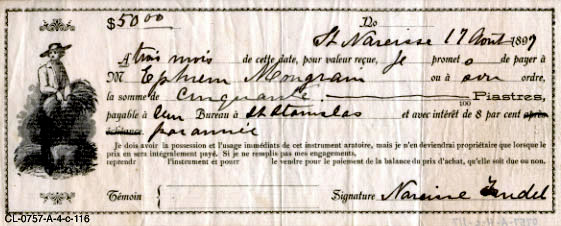 $50.00 No
St Narcisse 17 Aout 1897
A trois mois de cette date, pour valeur reçue, je promets de payer à
M Ephrem Mongrain ou à son ordre,
la somme de Cinquante 100 Piastres,
payable à leur Bureau à St Stanislas et avec intérêt de 8 par cent après
échéance. par année
Je dois avoir la possession et l'usage immédiats de cet instrument aratoire, mais je n'en deviendrai propriétaire que lorsque le
prix en sera intégralement payé. Si je ne remplis pas mes engagements,
reprendr l'instrument et poser le vendre pour le paiement de la balance du prix d'achat, qu'elle soit due ou non.
Témoin { Signature Narcisse Trudel
CL-0757-A-4-c-116